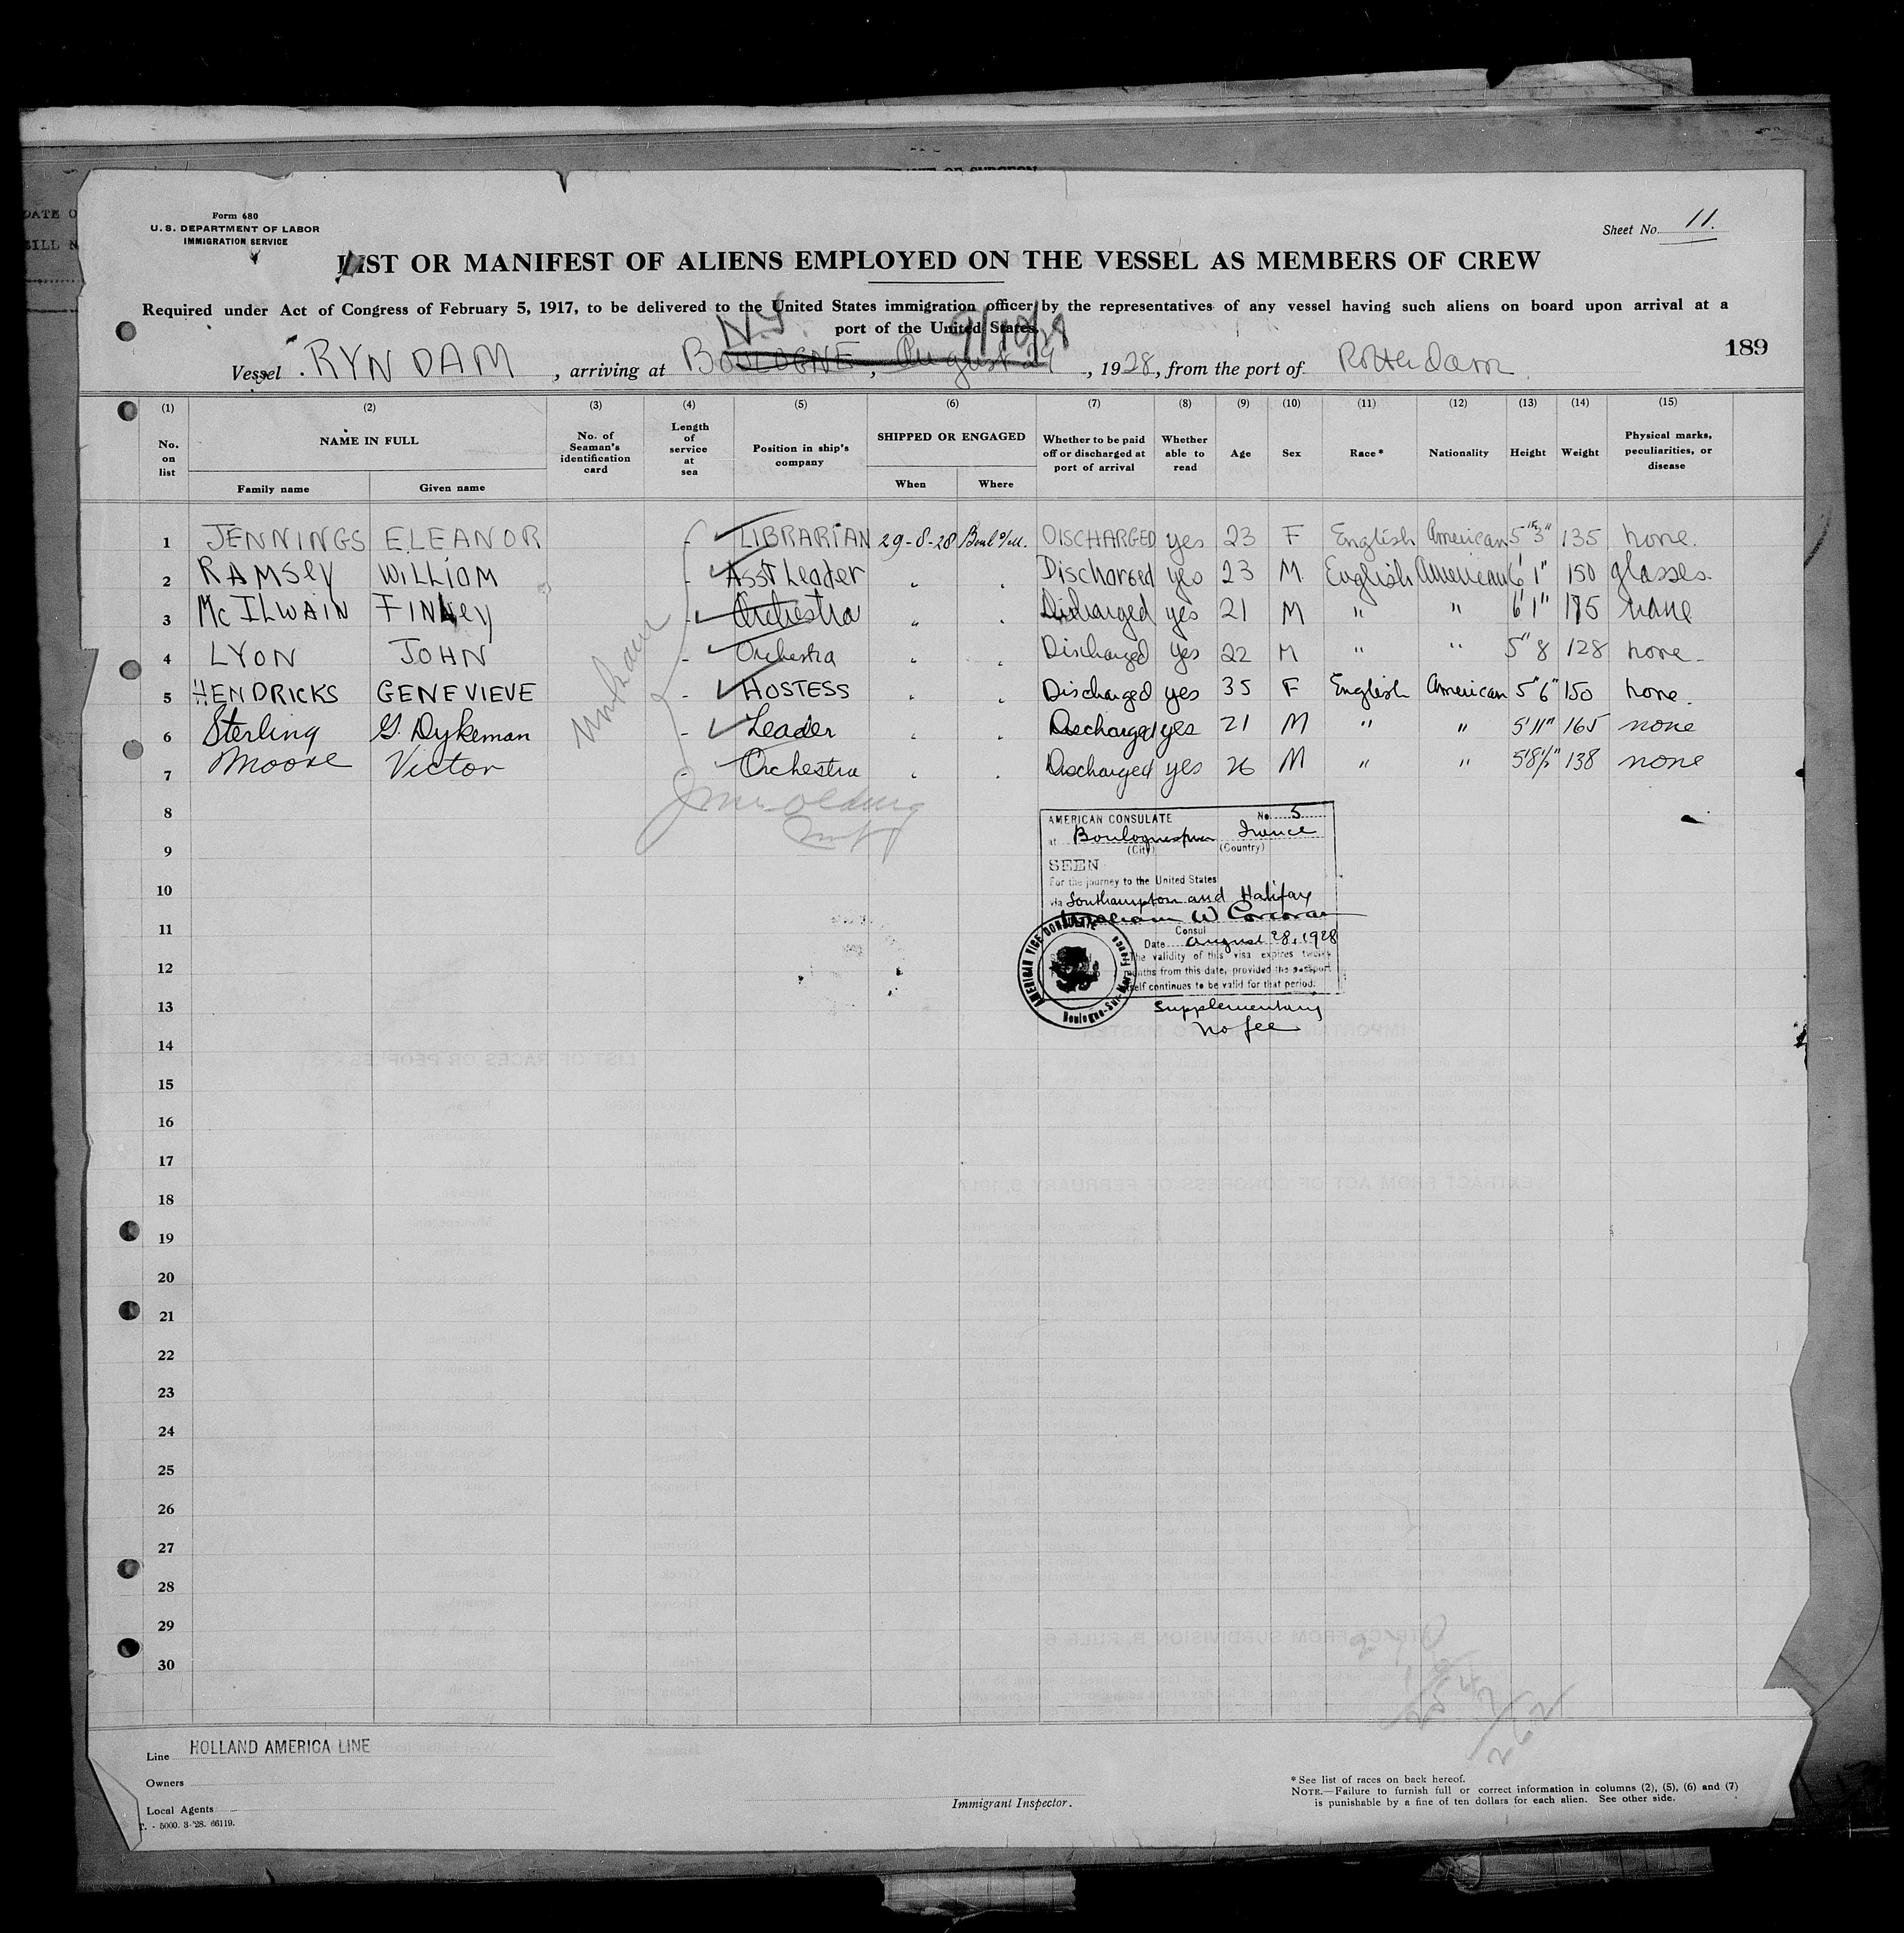 Form 680
U. S. DEPARTMENT OF LABOR
IMMIGRATION SERVICE
Sheet No. 11.
LIST OR MANIFEST OF ALIENS EMPLOYED ON THE VESSEL AS MEMBERS OF CREW
Required under Act of Congress of February 5, 1917, to be delivered to the United States immigration officer by the representatives of any vessel having such aliens on board upon arrival at a
port of the United States.
N.Y.
189
Vessel RYNDAM, arriving at BOULOGNE, August 29, 1928, from the port of Rotterdam
(1) (2) (3) (4) (5) (6) (7) (8) (9) (10) (11) (12) (13) (14) (15)
No. on list NAME IN FULL No. of Seaman's identification card Length of service at sea Position in ship's company SHIPPED OR ENGAGED Whether to be paid off or discharged at port of arrival Whether able to read Age Sex Race* Nationality Height Weight Physical marks, peculiarities, or disease
Family name Given name When Where
1 JENNINGS ELEANOR - LIBRARIAN 29-8-28 DISCHARGED yes 23 F English American 5 3" 135 none.
2 RAMSEY WILLIAM - Asst Leader " " Discharged yes 23 M English American 6'1" 150 glasses.
3 McILWAIN FINLEY - Orchestra " " Discharged yes 21 M " " 6'1" 175 none
4 LYON JOHN - Orchestra " " Discharged yes 22 M " " 5"8 128 none
5 HENDRICKS GENEVIEVE - HOSTESS " Discharged yes 35 F English American 5"6" 150 none.
6 Sterling G. Dykeman - Leader " " Discharged yes 21 M " " 5'11" 165 none
7 Moore Victor - Orchestra " " Discharged yes 26 M " " 5'8½" 138 none
8
9
10
11
12
13
14
15
16
17
18
19
20
21
22
23
24
25
26
27
28
29
30
AMERICAN CONSULATE No. 5
at Boulogne France
(City) (Country)
SEEN
For the journey to the United States
via Southampton and Halifax
William W Corcoran
Consul
Date August 28, 1928
The validity of this visa expires twelve
months from this date, provided the passport
itself continues to be valid for that period.
AMERICAN VICE CONSULATE
Boulogne-Sur-Mer, France
Supplementary
no fee
262
Line HOLLAND AMERICA LINE
Owners
Local Agents
T. - 5000. 3-'28. 66119.
Immigrant Inspector.
* See list of races on back hereof.
NOTE.—Failure to furnish full or correct information in columns (2), (5), (6) and (7)
is punishable by a fine of ten dollars for each alien. See other side.